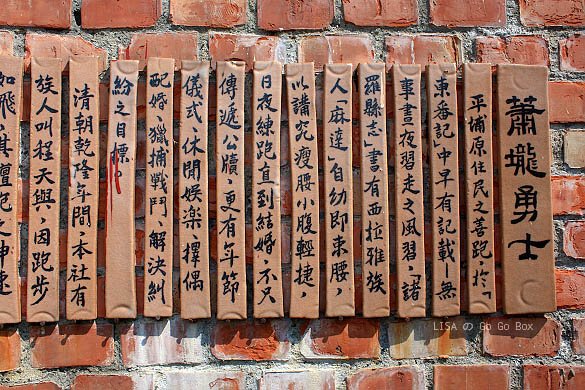 蕭壠勇士
平埔原住民之善跑，於「
東番記」中早有記載—無
事晝夜習走之風習「諸
羅縣志」書有西拉雅族
人「麻達」自幼即束腰，
以講究瘦腰小腹輕捷，
日夜練跑直到結婚不只
傳遞公牘，更有年節
儀式、休閒娛樂、擇偶
配婚、獵捕戰鬥、解決糾
紛之目標。
清朝乾隆年間本社有
族人叫程天與，因跑步
如飛，其壇祀之神速
LISA の Go Go Box